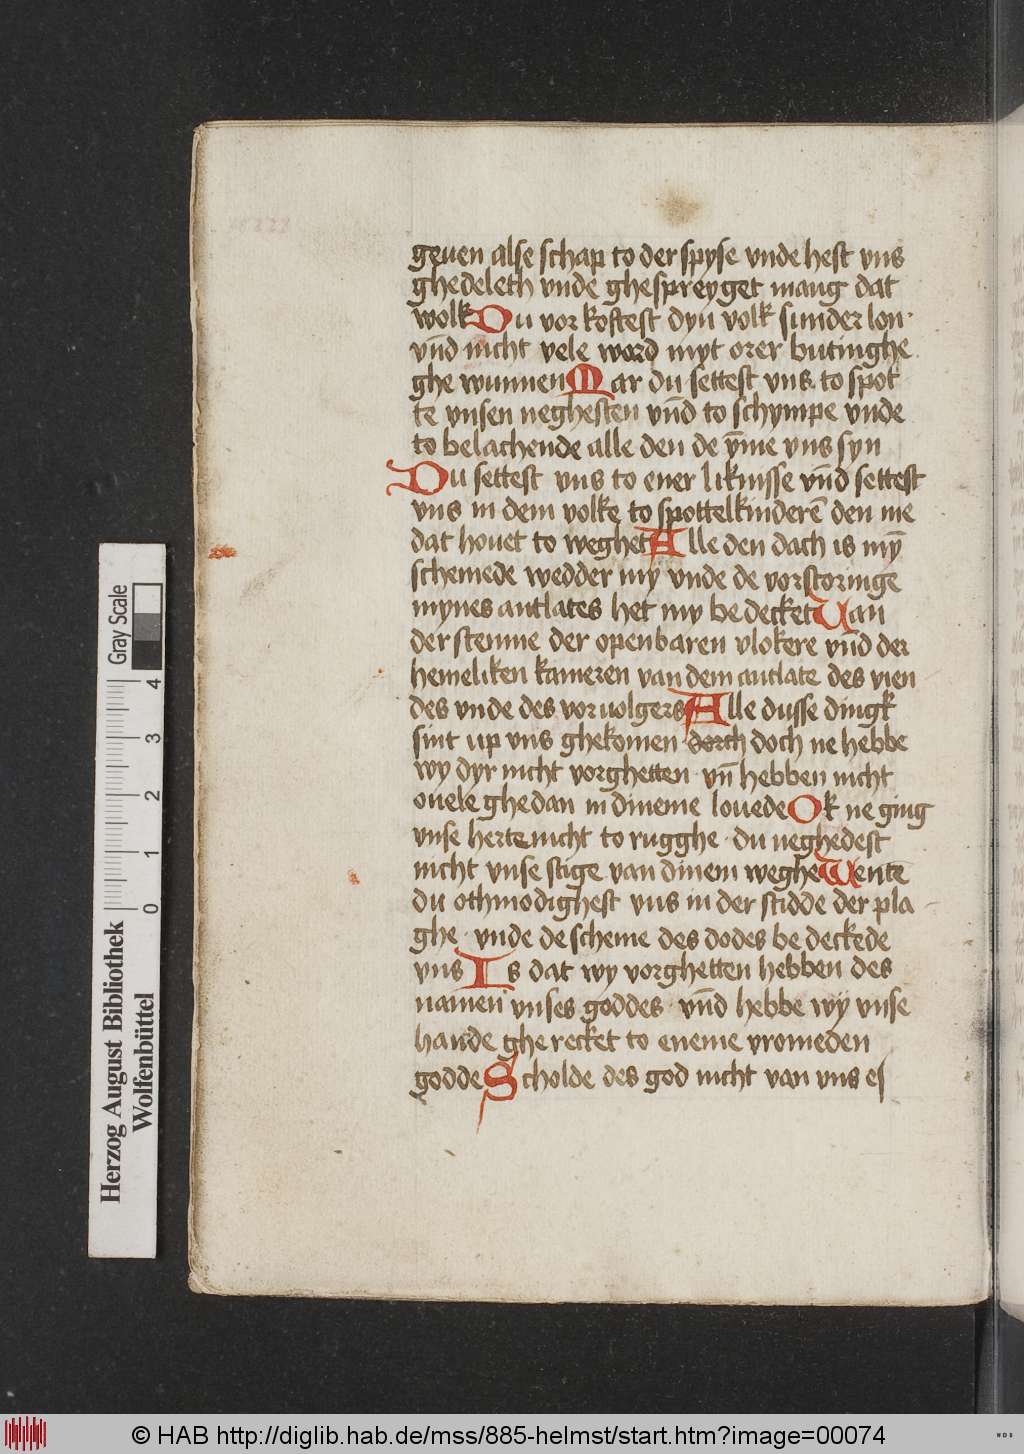 geuen alse schap to der spyse vnde hest vns
ghedeleth vnde ghespreyget mang dat
wolk Du vorkoftest dyn volk sunder lon·
vn̄d nicht vele word myt orer butinghe
ghe wunnen Mar du settest vns to spot
te vnsen neghesten vn̄d to schympe vnde
to belachende alle den de ȳme vns syn
Du settest vns to ener liknisse vn̄d settest
vns in dem volke to spottelkinderē den me
dat houet to weghet Alle den dach is mȳ
schemede wedder my vnde de vorstoringe
mynes antlates het my bedecket Uan
der stemme der openbaren vlokere vn̄d der
hemeliken kameren van dem antlate des vien
des vnde des voruolgers Alle dusse dingk
sint up vns ghekomen dorch doch ne hebbe
wy dyr nicht vorghetten · vn̄ hebben nicht
ouele ghedan in dineme louede Ok ne ging
vnse herte nicht to rugghe · du neghedest
nicht vnse stige van dinem weghe Wente
du othmodighest vns in der stidde der pla
ghe · vnde de scheme des dodes bedeckede
vns Is dat wy vorghetten hebben des
namen vnses goddes · vn̄d hebbe wy vnse
hande gherecket to eneme vromeden
godde Scholde des god nicht van vns es
Herzog August Bibliothek
Wolfenbüttel
Gray Scale
0 1 2 3 4
© HAB http://diglib.hab.de/mss/885-helmst/start.htm?image=00074